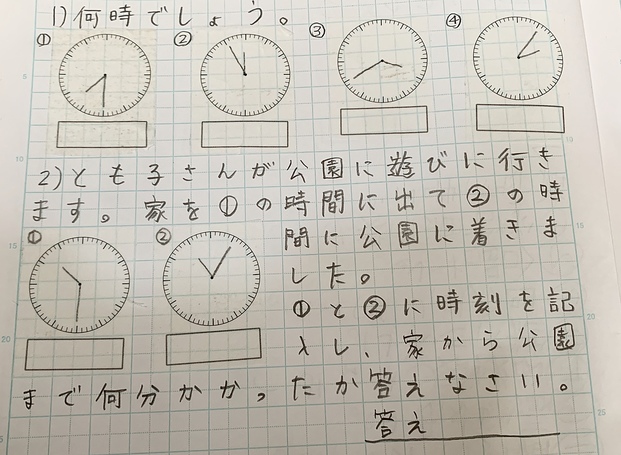 1)何時でしょう。
① ② ③ ④
2)とも子さんが公園に遊びに行き
ます。家を①の時間に出て②の時
間に公園に着きま
した。
① ②
①と②に時刻を記
入し、家から公園
まで何分かかったか答えなさい。
答え